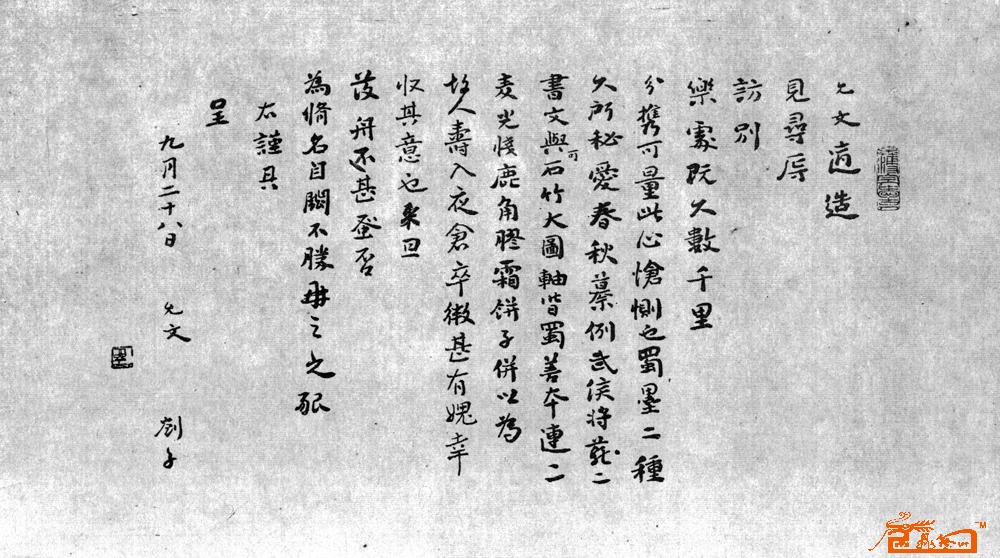 允文適造
見尋辱
訪別
樂處既久數千里
分攜可量此心愴惻也蜀墨二種
久所秘愛春秋纂例武侯將苑二
書文與可石竹大圖軸皆蜀善本連二
麦光牋鹿角膠霜餅子併以為
故人壽入夜倉卒微甚有媿幸
収其意也來日
發舟不甚蚤否
為脩名自閟不勝毋之之
右謹具
呈
九月二十八日 允文 劄子